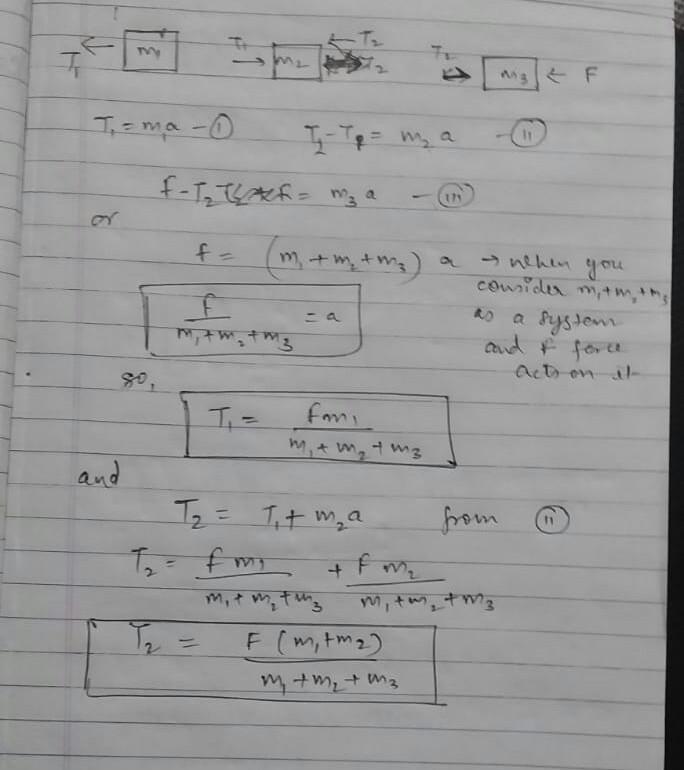 T₁ ← m₁ T₁ → m₂ ← T₂ T₂ T₂ → m₃ ← F
T₁ = m₁a - (I) T₂ - T₁ = m₂ a - (II)
f - T₂ = m₃ a - (III)
or
f = (m₁ + m₂ + m₃) a → when you
consider m₁+m₂+m₃
f / (m₁ + m₂ + m₃) = a as a system
and f force
acts on it
so,
T₁ = fm₁ / (m₁ + m₂ + m₃)
and
T₂ = T₁ + m₂a from (II)
T₂ = f m₁ / (m₁ + m₂ + m₃) + F m₂ / (m₁ + m₂ + m₃)
T₂ = F (m₁+m₂) / (m₁ + m₂ + m₃)